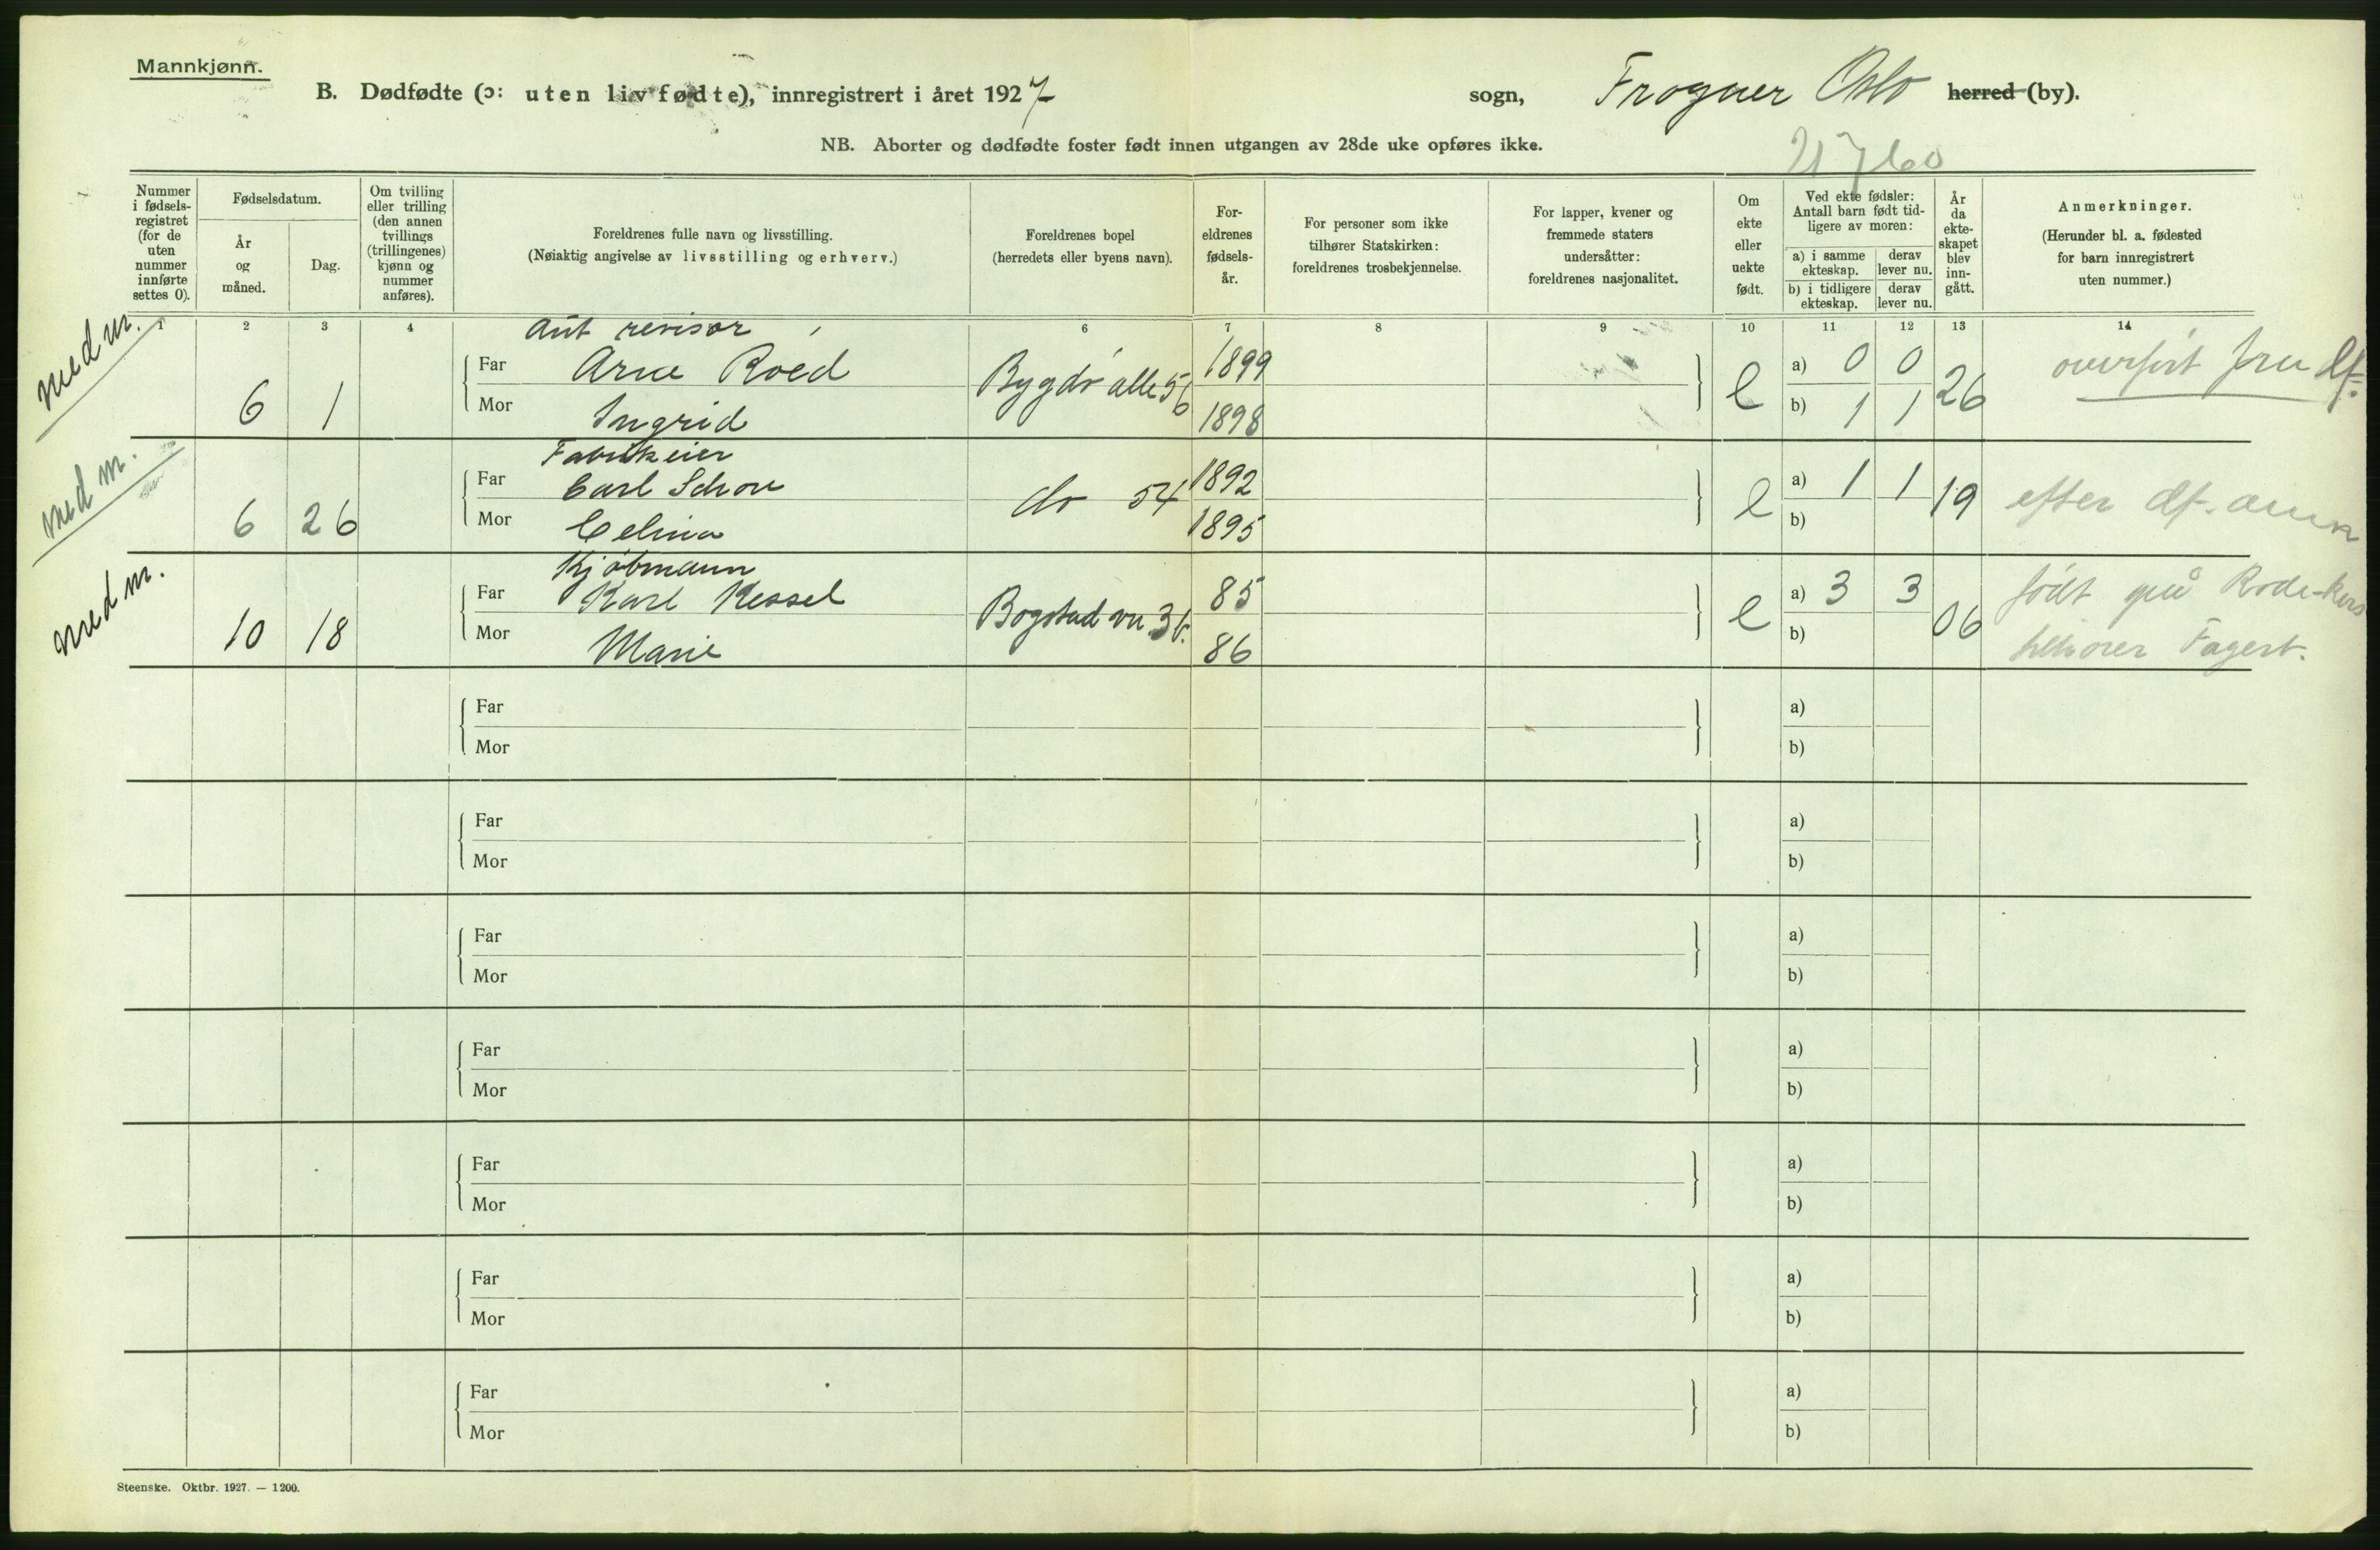 Mannkjønn.
B. Dødfødte (ɔ: uten liv fødte), innregistrert i året 1927
sogn, Frogner Oslo herred (by).
NB. Aborter og dødfødte foster født innen utgangen av 28de uke opføres ikke.
21760
Nummer i fødsels-registret (for de uten nummer innførte settes 0).
Fødselsdatum.
År og måned.
Dag.
Om tvilling eller trilling (den annen tvillings (trillingenes) kjønn og nummer anføres).
Foreldrenes fulle navn og livsstilling.
(Nøiaktig angivelse av livsstilling og erhverv.)
Foreldrenes bopel
(herredets eller byens navn).
For-eldrenes fødsels-år.
For personer som ikke tilhører Statskirken: foreldrenes trosbekjennelse.
For lapper, kvener og fremmede staters undersåtter: foreldrenes nasjonalitet.
Om ekte eller uekte født.
Ved ekte fødsler: Antall barn født tid-ligere av moren:
a) i samme ekteskap.
derav lever nu.
b) i tidligere ekteskap.
derav lever nu.
År da ekte-skapet blev inn-gått.
Anmerkninger.
(Herunder bl. a. fødested for barn innregistrert uten nummer.)
1 2 3 4 6 7 8 9 10 11 12 13 14
med m.
Aut revisor
Far Arne Roed 1899 a) 0 0
6 1 Bygdø alle 56 e 26 overført fra df.
Mor Ingrid 1898 b) 1 1
med m.
Fabrikeier
Far Carl Schou 1892 a) 1 1
6 26 do 54 e 19 efter df. anm
Mor Celina 1895 b)
med m.
Kjøbmann
Far Karl Kessel 85 a) 3 3 født på Røde-kors
10 18 Bogstad vn 36. e 06
Mor Marie 86 b) tilhører Fagerb.
Far a)
Mor b)
Far a)
Mor b)
Far a)
Mor b)
Far a)
Mor b)
Far a)
Mor b)
Far a)
Mor b)
Far a)
Mor b)
Steenske. Oktbr. 1927. — 1200.